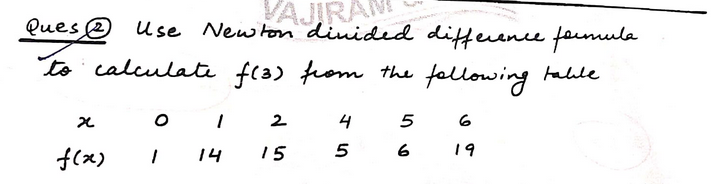 VAJIRAM
Ques ② Use Newton divided difference formula
to calculate f(3) from the following table
x 0 1 2 4 5 6
f(x) 1 14 15 5 6 19